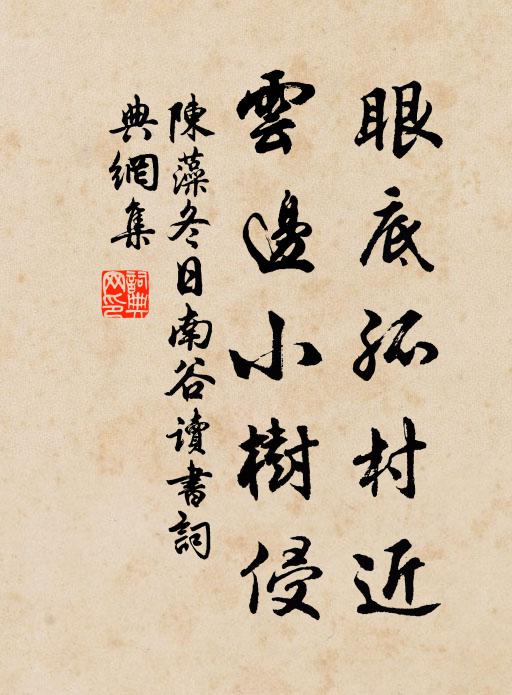 眼底孤村近
雲邊小樹侵
陳藻冬日南谷讀書詞
典網集
詞典網印